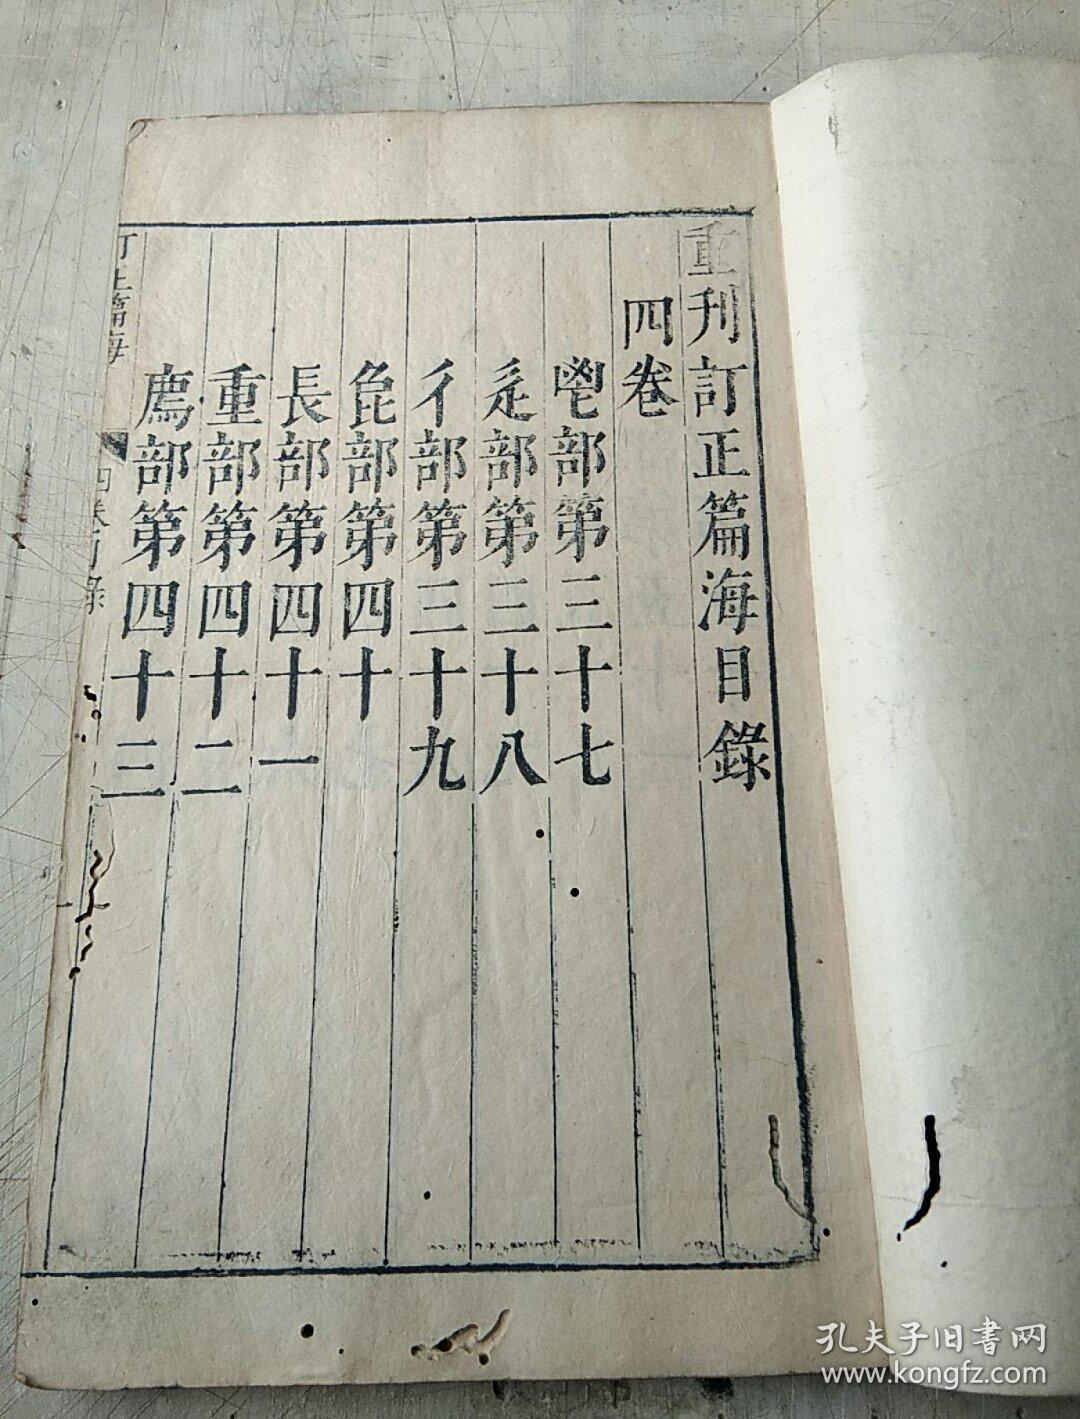 重刊訂正篇海目錄
四卷
鬯部第三十七
辵部第三十八
彳部第三十九
㲋部第四十
長部第四十一
重部第四十二
廌部第四十三
訂正篇海
四卷目錄
孔夫子旧書网
www.kongfz.com